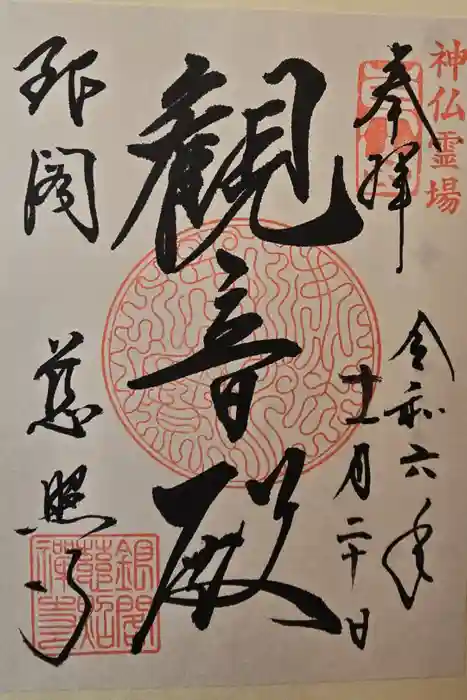 神仏霊場
奉拝
令和六年
十一月二十日
観音殿
銀閣
慈照寺
銀閣
慈照
禅寺